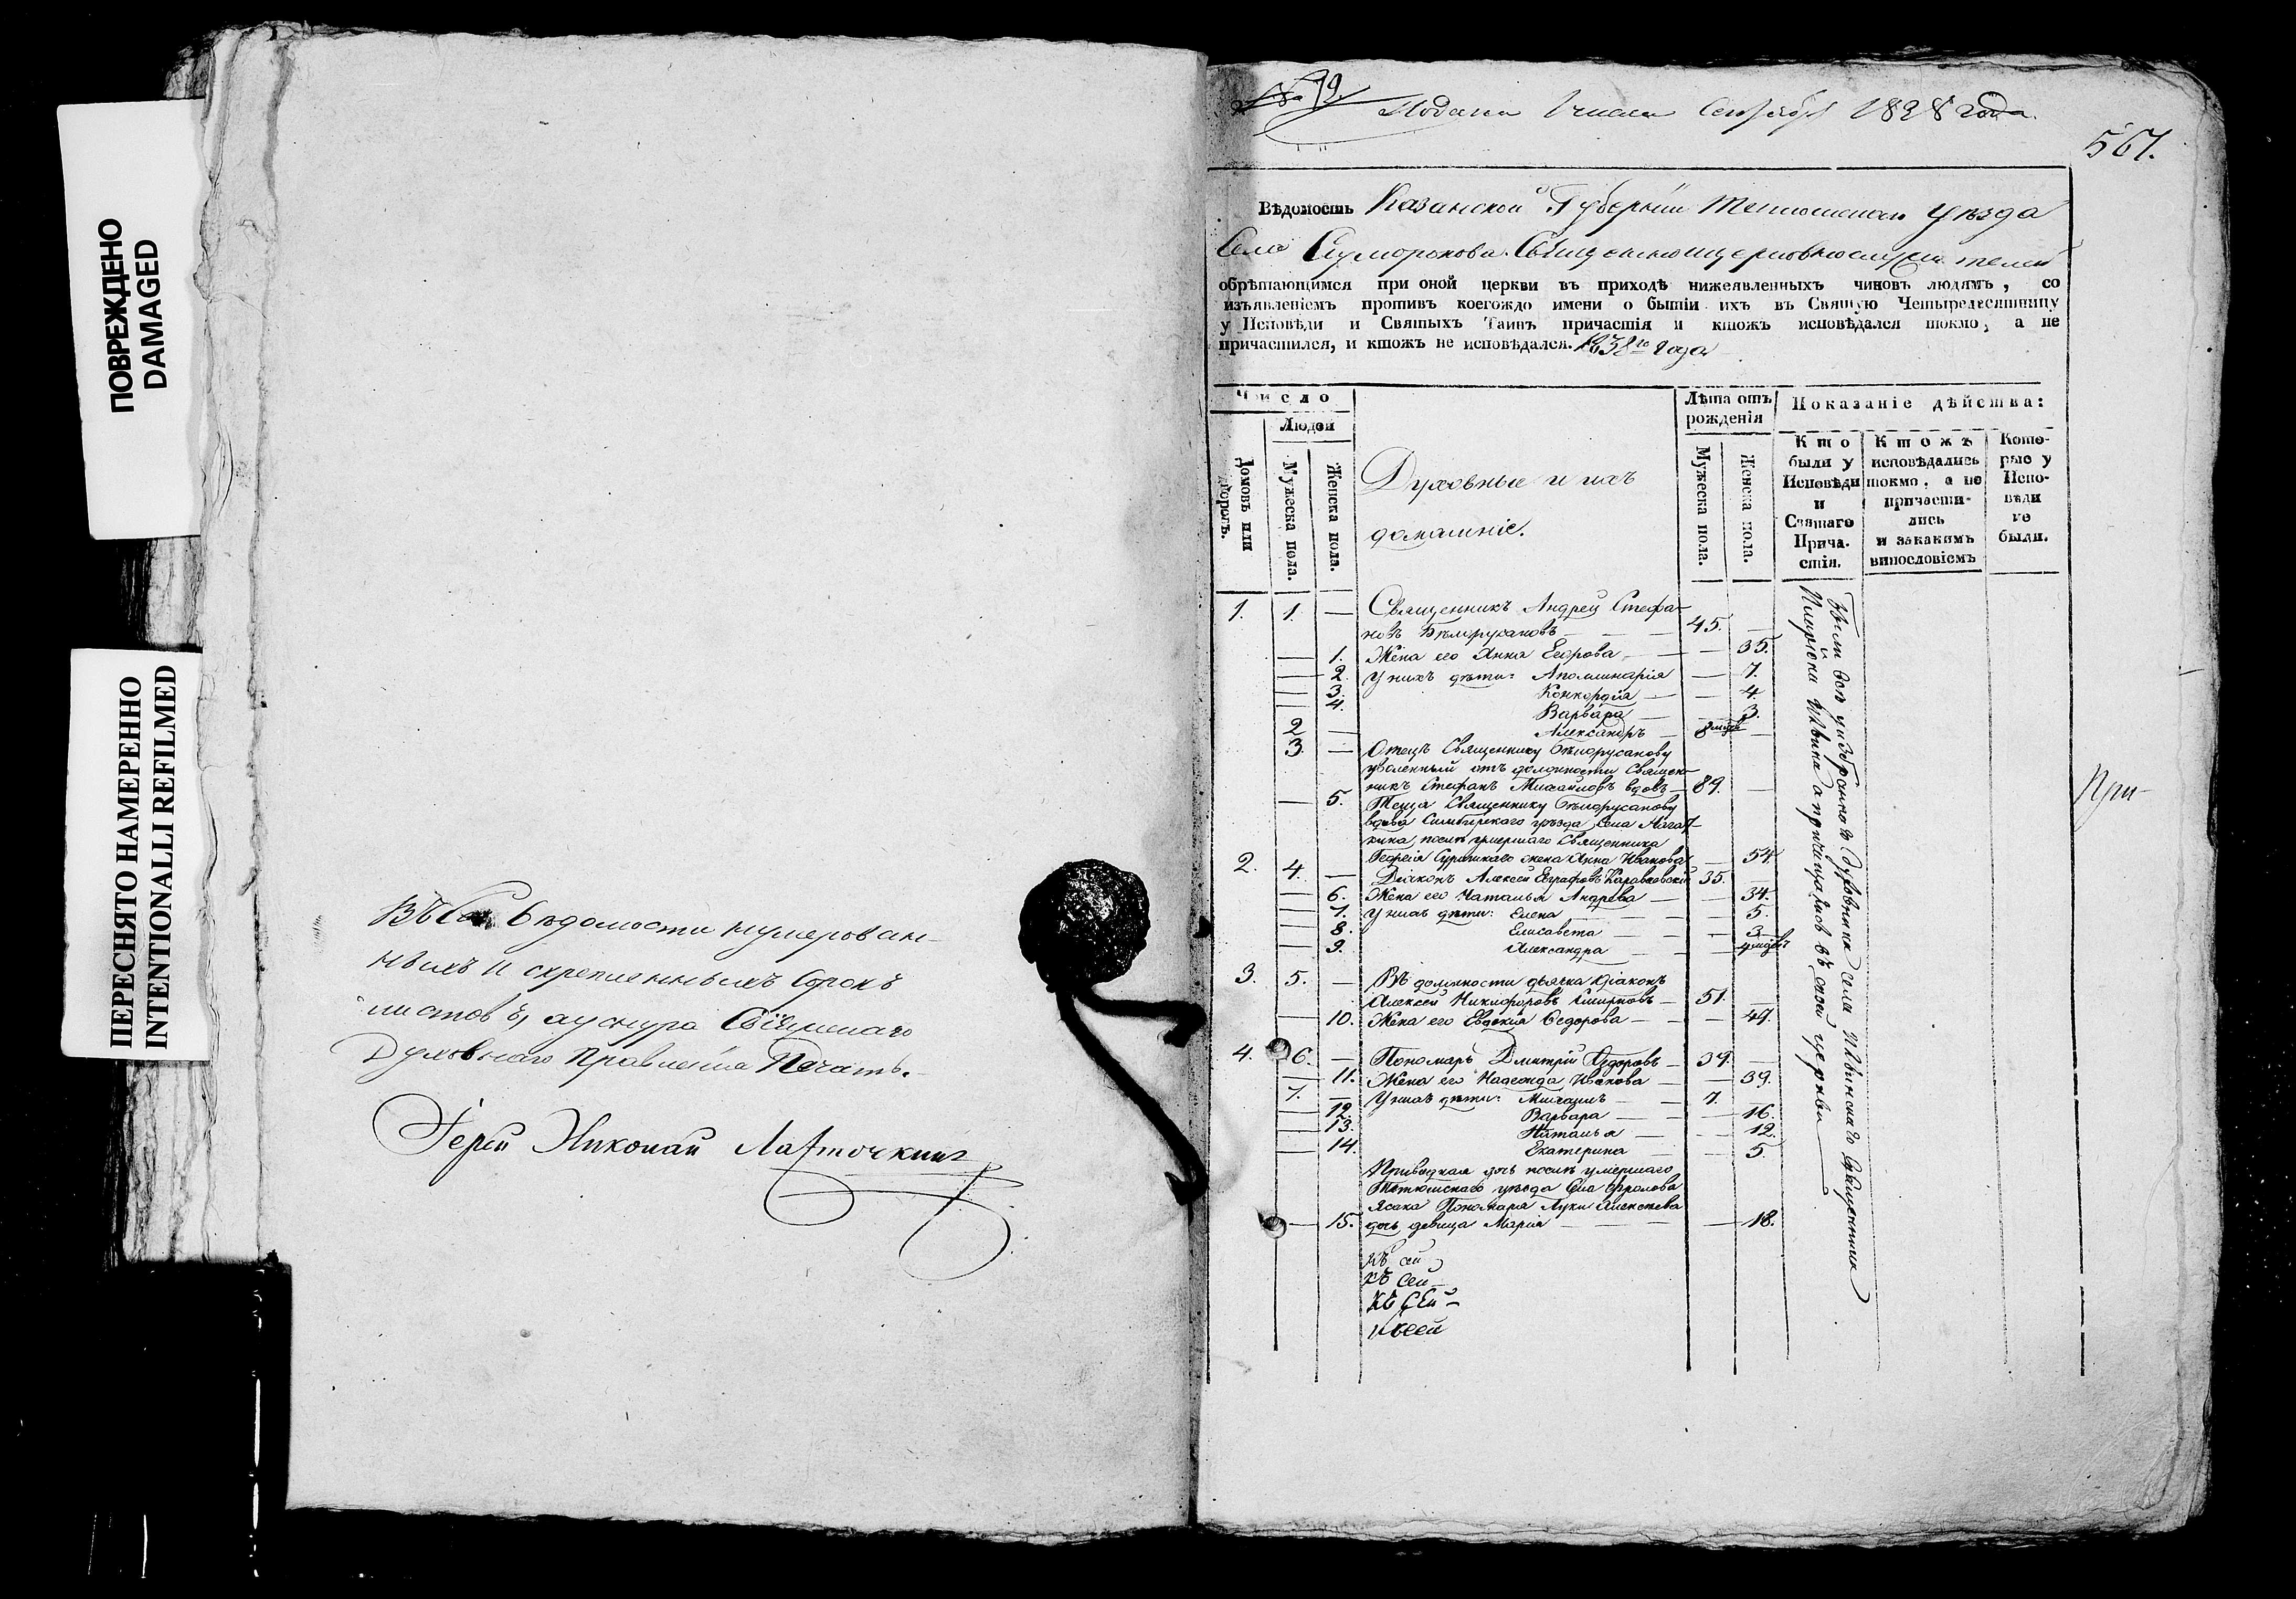 ПОВРЕЖДЕНО
DAMAGED
ПЕРЕСНЯТО НАМЕРЕННО
INTENTIONALLI REFILMED
Вѣдомости нумерован-
ныхъ и скрепленныхъ сорокъ
листовъ, а у снура Свіяжскаго
Духовнаго Правленія Печать.
Іерей Николай Ласточкинъ
№ 19.
Подана 1 числа Сентября 1838 года.
567.
Вѣдомость Казанской Губерніи Тетюшскаго Уѣзда
Села Сумарокова Священноцерковнослужителей
обрѣтающимся при оной церкви въ приходѣ нижеявленныхъ чиновъ людямъ, со
изъявленіемъ противъ коегождо имени о бытіи ихъ въ Святую Четыредесятницу
у Исповѣди и Святыхъ Таинъ причастія и ктожъ исповѣдался токмо, а не
причастился, и ктожъ не исповѣдался. 1838го года
Число
Людей
Домовъ или дворовъ.
Мужеска пола.
Женска пола.
Духовные и ихъ
домашніе.
Лѣта отъ рожденія
Мужеска пола.
Женска пола.
Показаніе дѣйства:
Кто были у Исповѣди и Святаго Прича-стія.
Ктожъ исповѣдались токмо, а не причасти-лись и закакимъ винословіемъ
Кото-рые у Испо-вѣди не были.
1. 1. — Священникъ Андрей Стефа-
новъ Бѣлорусановъ — 45. —
— 1. Жена его Анна Егорова — — 35.
— 2. У нихъ дѣти: Аполлинарія — 7.
— 3. Конкордія — — 4.
— 4. Варвара — — 3.
2 — Александръ — 8 —
3. — Отецъ Священнику Бѣлорусанову
уволенный отъ должности Священ-
никъ Стефанъ Михайловъ вдовъ — 89. —
— 5. Теща Священнику Бѣлорусанову
вдова Симбирскаго уѣзда Села Нагат-
кина, послѣ умершаго Священника
Георгія жена Анна Иванова — 54.
2. 4. — Діаконъ Алексей Евграфовъ 35. —
— 6. Жена его Наталья Андреева — — 34.
— 7. У нихъ дѣти: Елена — — 5.
— 8. Елисавета — — 3.
— 9. Александра — —
3. 5. — Въ должности дьячка Діаконъ
Алексей Никифоровъ Смирновъ — 51. —
— 10. Жена его Евдокія Ѳедорова — — 49.
4. 6. — Пономарь Дмитрій — 39. —
— 11. Жена его Надежда Иванова — — 39.
7. — У нихъ дѣти: Михаилъ — 7. —
— 12. Варвара — — 16.
— 13. Наталья — — 12.
— 14. Екатерина — — 5.
дочь послѣ умершаго
Тетюшскаго уѣзда Села Фролова
Пономаря Луки Алексеева
— 15. дочь девица Марія — — 18.
Были всѣ у избраннаго духовника села Священника
а причащались въ своей церкви
При-
къ сей
къ сей
къ сей
къ сей